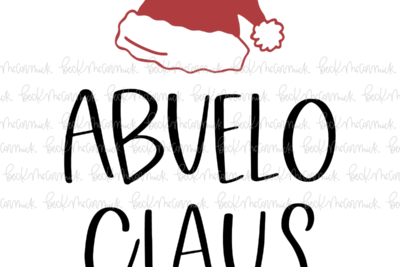 ABUELO
CLAUS